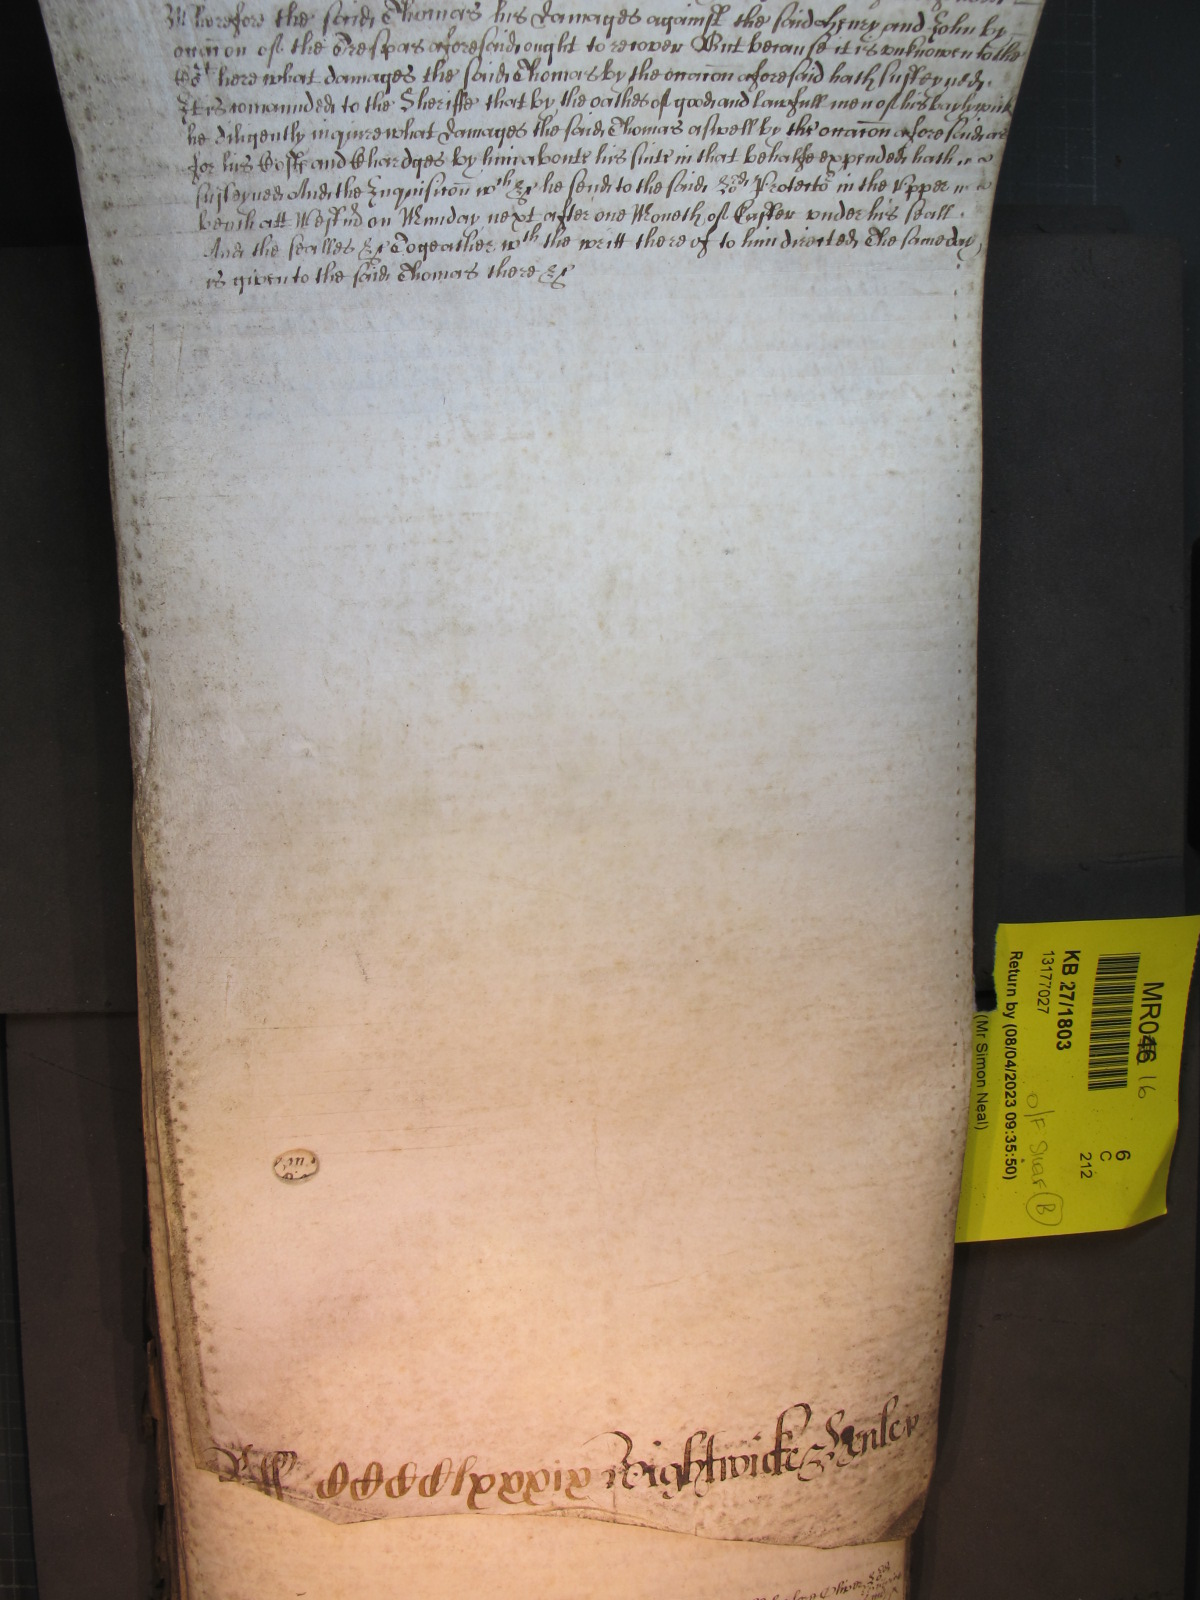 Wherefore the said Thomas his damages against the said Henry and John by
occacon of the Trespas aforesaid ought to recover But because it is unknowen to the
Cort here what damages the said Thomas by the occacon aforesaid hath susteyned
It is comaunded to the Sheriffe that by the oathes of good and lawfull men of his baylywick
he diligently inquire what damages the said Thomas aswell by the occacon aforesaid as
for his Costs and Chardges by him aboute his suite in that behalfe expended hath
susteyned And the Inquisicon wch &c he send to the said Lord Protector in the Upper
bench att Westmr on Munday next after one Moneth of Easter under his seall
And the sealles &c Togeather wth the writt thereof to him directed The same day
is given to the said Thomas there &c
MR046 16
KB 27/1803
13177027
Return by (08/04/2023 09:35:50)
(Mr Simon Neal)
6
C
212
B
lxxxix Wightwicke &